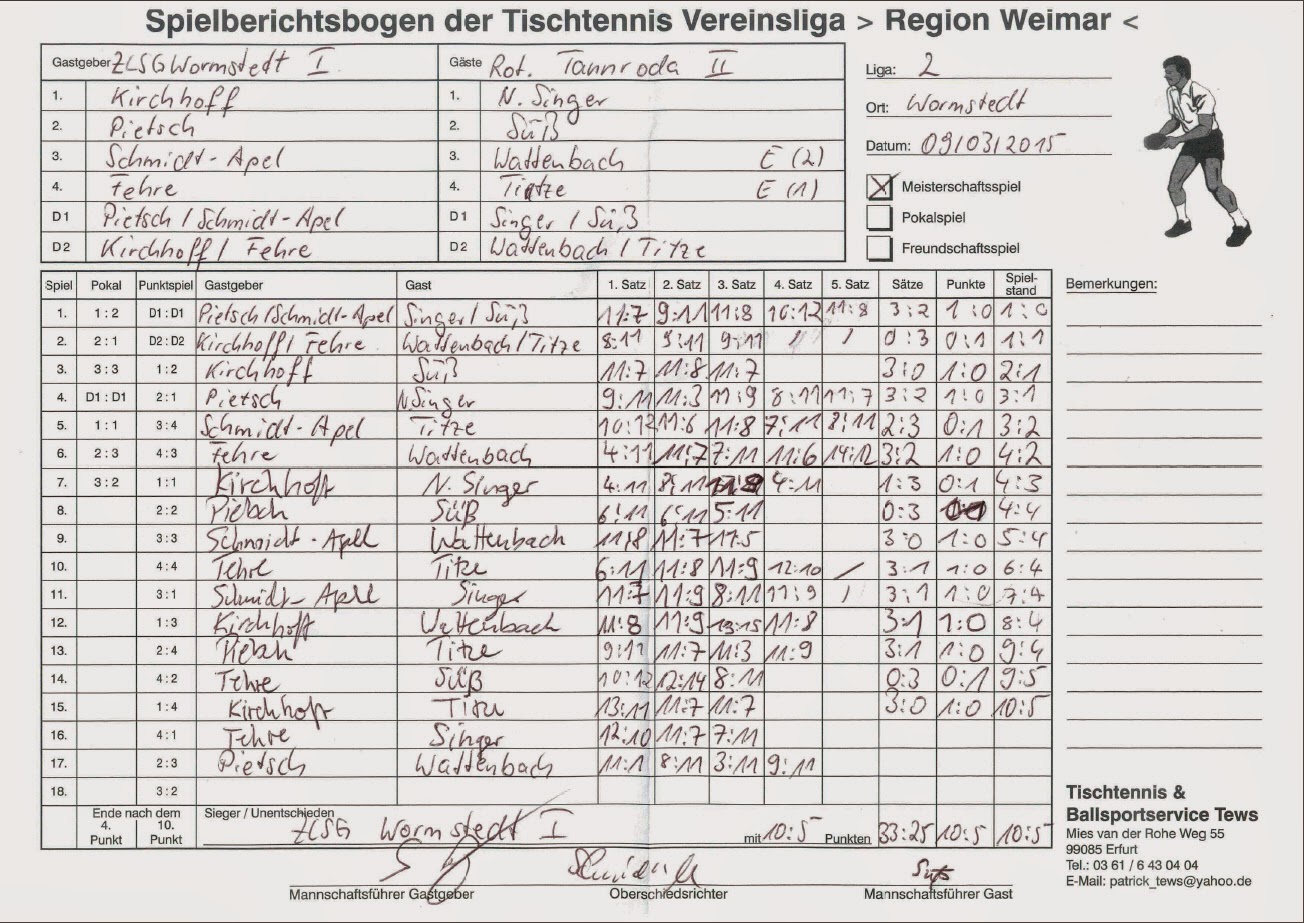 Spielberichtsbogen der Tischtennis Vereinsliga > Region Weimar <
Gastgeber ZLSG Wormstedt I Gäste Rot. Tannroda II
1. Kirchhoff 1. N. Singer
2. Pietsch 2. Süß
3. Schmidt-Apel 3. Wattenbach E (2)
4. Fehre 4. Tietze E (1)
D1 Pietsch / Schmidt-Apel D1 Singer / Süß
D2 Kirchhoff / Fehre D2 Wattenbach / Titze
Liga: 2
Ort: Wormstedt
Datum: 09/03/2015
Meisterschaftsspiel
Pokalspiel
Freundschaftsspiel
Spiel Pokal Punktspiel Gastgeber Gast 1. Satz 2. Satz 3. Satz 4. Satz 5. Satz Sätze Punkte Spiel-stand
1. 1:2 D1:D1 Pietsch/Schmidt-Apel Singer/Süß 11:7 9:11 11:8 10:12 11:8 3:2 1:0 1:0
2. 2:1 D2:D2 Kirchhoff/Fehre Wattenbach/Titze 8:11 9:11 9:11 / / 0:3 0:1 1:1
3. 3:3 1:2 Kirchhoff Süß 11:7 11:8 11:7 3:0 1:0 2:1
4. D1:D1 2:1 Pietsch N.Singer 9:11 11:3 11:9 8:11 11:7 3:2 1:0 3:1
5. 1:1 3:4 Schmidt-Apel Titze 10:12 11:6 11:8 7:11 8:11 2:3 0:1 3:2
6. 2:3 4:3 Fehre Wattenbach 4:11 11:7 7:11 11:6 14:12 3:2 1:0 4:2
7. 3:2 1:1 Kirchhoff N. Singer 4:11 8:11 4:11 1:3 0:1 4:3
8. 2:2 Pietsch Süß 6:11 6:11 5:11 0:3 4:4
9. 3:3 Schmidt-Apel Wattenbach 11:8 11:7 11:5 3:0 1:0 5:4
10. 4:4 Fehre Titze 6:11 11:8 11:9 12:10 / 3:1 1:0 6:4
11. 3:1 Schmidt-Apel Singer 11:7 11:9 8:11 11:9 / 3:1 1:0 7:4
12. 1:3 Kirchhoff Wattenbach 11:8 11:9 13:15 11:8 3:1 1:0 8:4
13. 2:4 Pietsch Titze 9:11 11:7 11:3 11:9 3:1 1:0 9:4
14. 4:2 Fehre Süß 10:12 12:14 8:11 0:3 0:1 9:5
15. 1:4 Kirchhoff Titze 13:11 11:7 11:7 3:0 1:0 10:5
16. 4:1 Fehre Singer 12:10 11:7 7:11
17. 2:3 Pietsch Wattenbach 11:1 8:11 3:11 9:11
18. 3:2
Ende nach dem
4. Punkt 10. Punkt
Sieger / Unentschieden
ZLSG Wormstedt I mit 10:5 Punkten 33:25 10:5 10:5
Mannschaftsführer Gastgeber Oberschiedsrichter Mannschaftsführer Gast
Bemerkungen:
Tischtennis &
Ballsportservice Tews
Mies van der Rohe Weg 55
99085 Erfurt
Tel.: 03 61 / 6 43 04 04
E-Mail: patrick_tews@yahoo.de